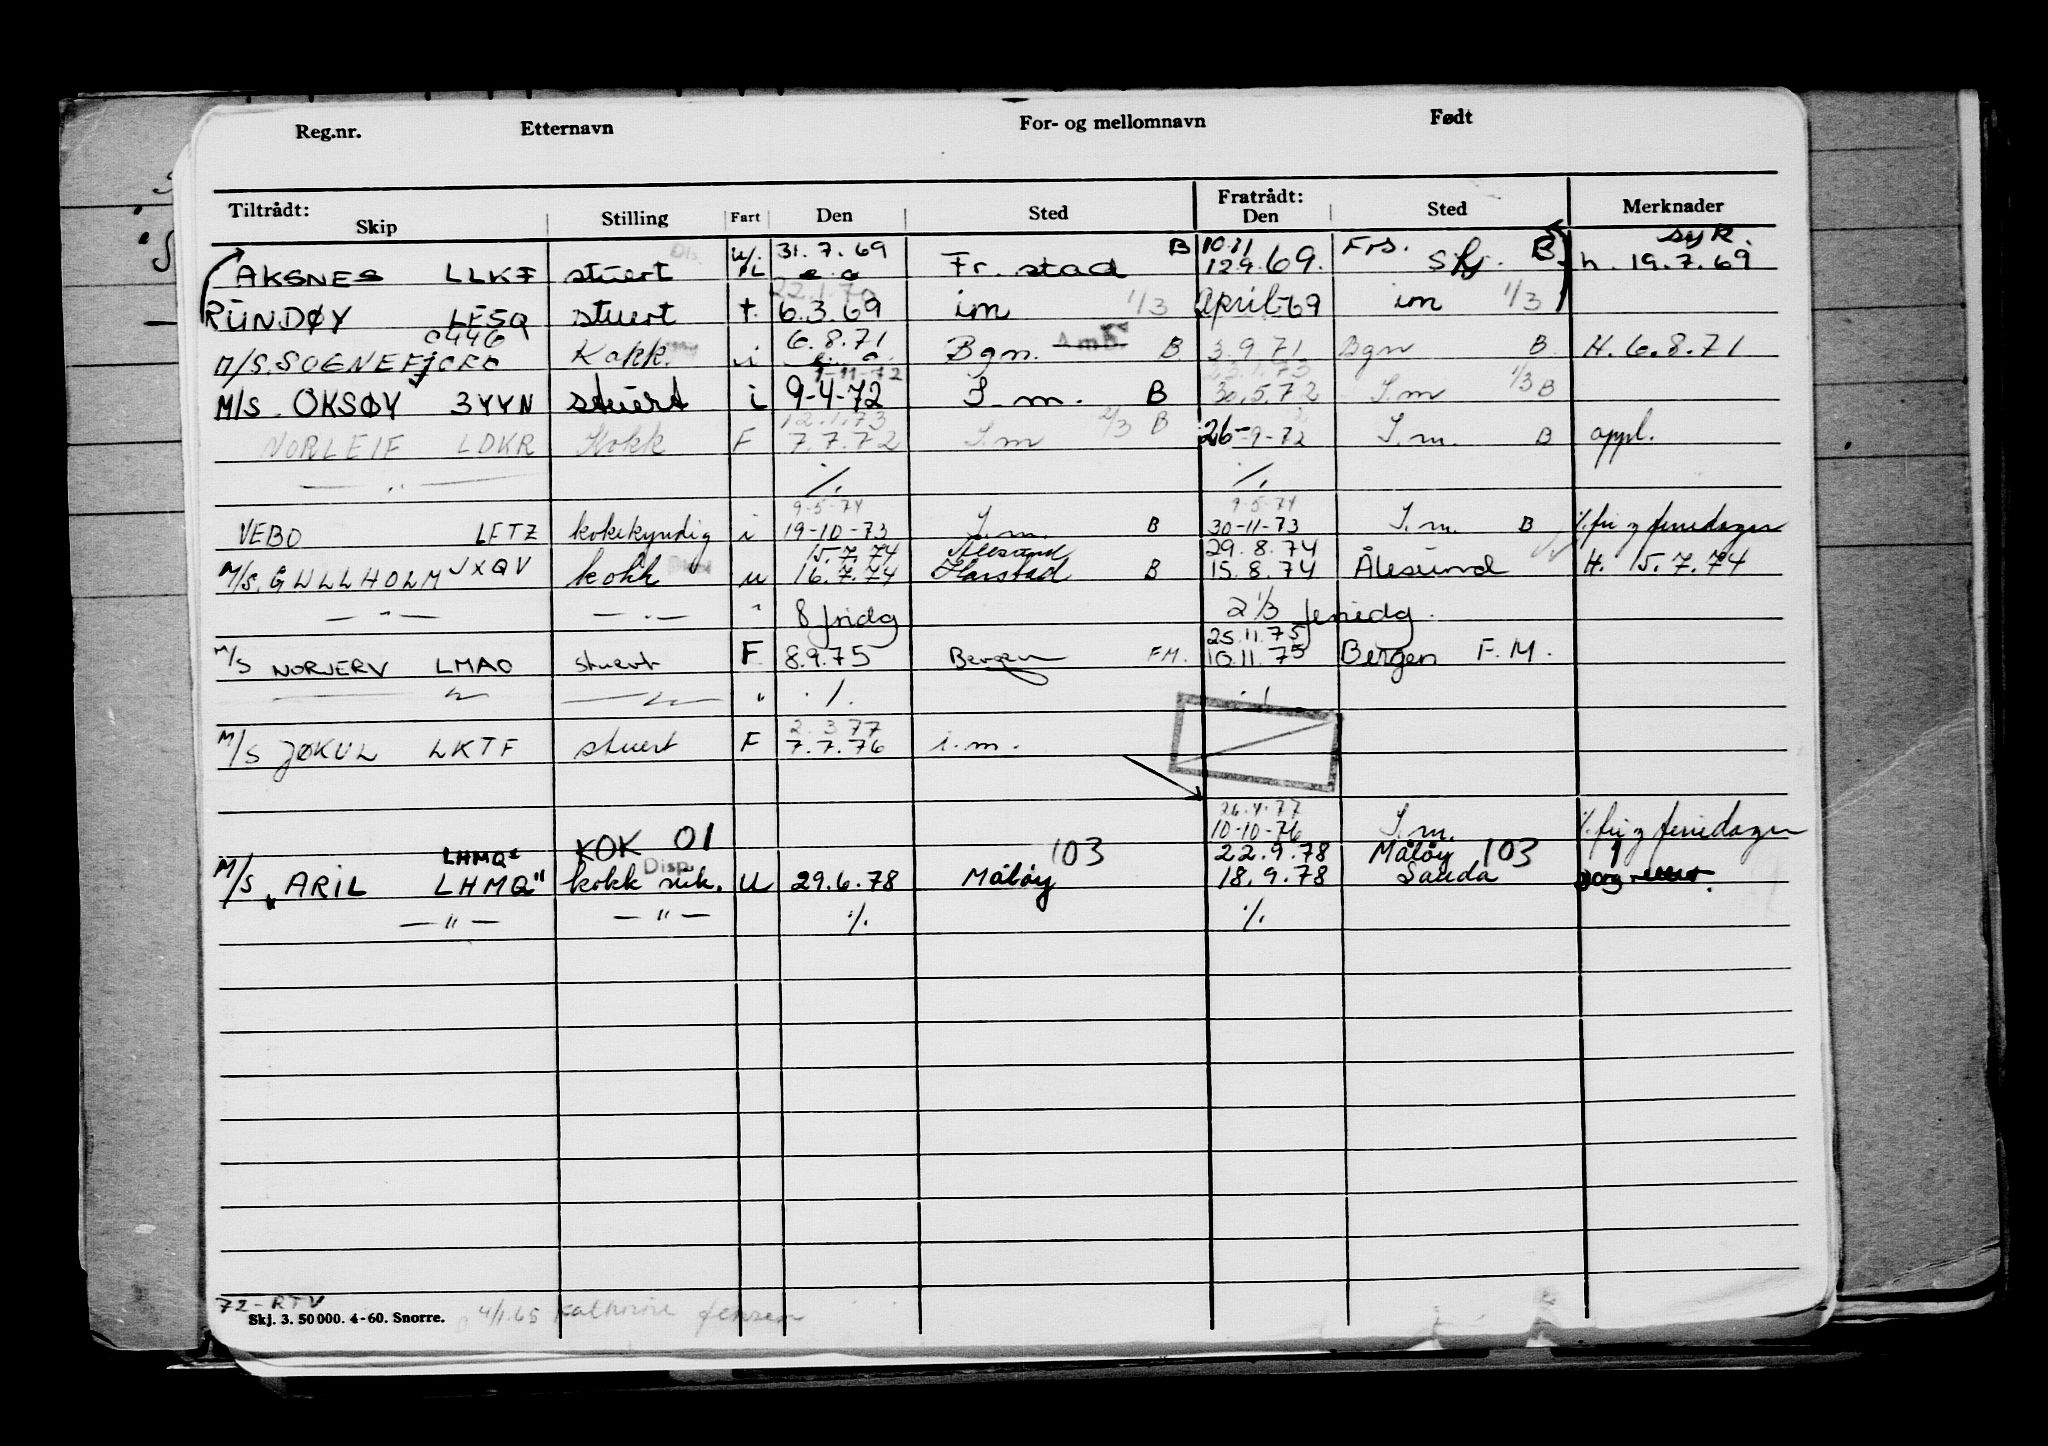 Reg.nr. Etternavn For- og mellomnavn Født
Tiltrådt: Fratrådt:
Skip Stilling Fart Den Sted Den Sted Merknader
31.7.69 B 10.11 Frs. B syk
AKSNES LLKF stuert Fr. stad 129.69. Skj. h. 19.7.69
22.1.70
RUNDØY LESQ stuert t. 6.3.69 im 1/3 April 69 im 1/3
0446 6.8.71
M/S. SOGNEFJORD Kokk. i Bgn. Amb. B 3.9.71 Bgn B H. 6.8.71
1-11-72 23.1.73
M/S OKSØY 3YYN stuert i 9-4-72 I.m. B 30.5.72 I.m 1/3 B
12.1.73
NORLEIF LDKR Kokk F 7.7.72 I.m 2/3 B 26-9-72 I.m. B appl.
— " — ·/. ·/.
9-5-74 9-5-74
VEBO LETZ kokekyndig i 19-10-73 I.m. B 30-11-73 I.m. B ·/. fri og feriedager
15.7.74 Ålesund 29.8.74
M/S. GULLHOLM JXQV kokk u 16.7.74 Harstad B 15.8.74 Ålesund H. 15.7.74
— " — — " — " 8 fridg 2 1/3 feriedg.
25.11.75
M/S NORJERV LMAO stuert F 8.9.75 Bergen FM. 10.11.75 Bergen F.M.
— " — — " — " ·/. ·/.
2.3.77
M/S JØKUL LKTF stuert F 7.7.76 i.m.
26.4.77
10-10-76 I.m. ·/. fri og feriedager
LHMQ KOK 01 103 22.9.78 Måløy 103
Disp.
M/S "ARIL LHMQ" kokk vik. u 29.6.78 Måløy 18.9.78 Sauda
— " — — " — ·/. ·/.
72-RTV
Skj. 3. 50 000. 4-60. Snorre. 4/1.65 Kathrine Jensen